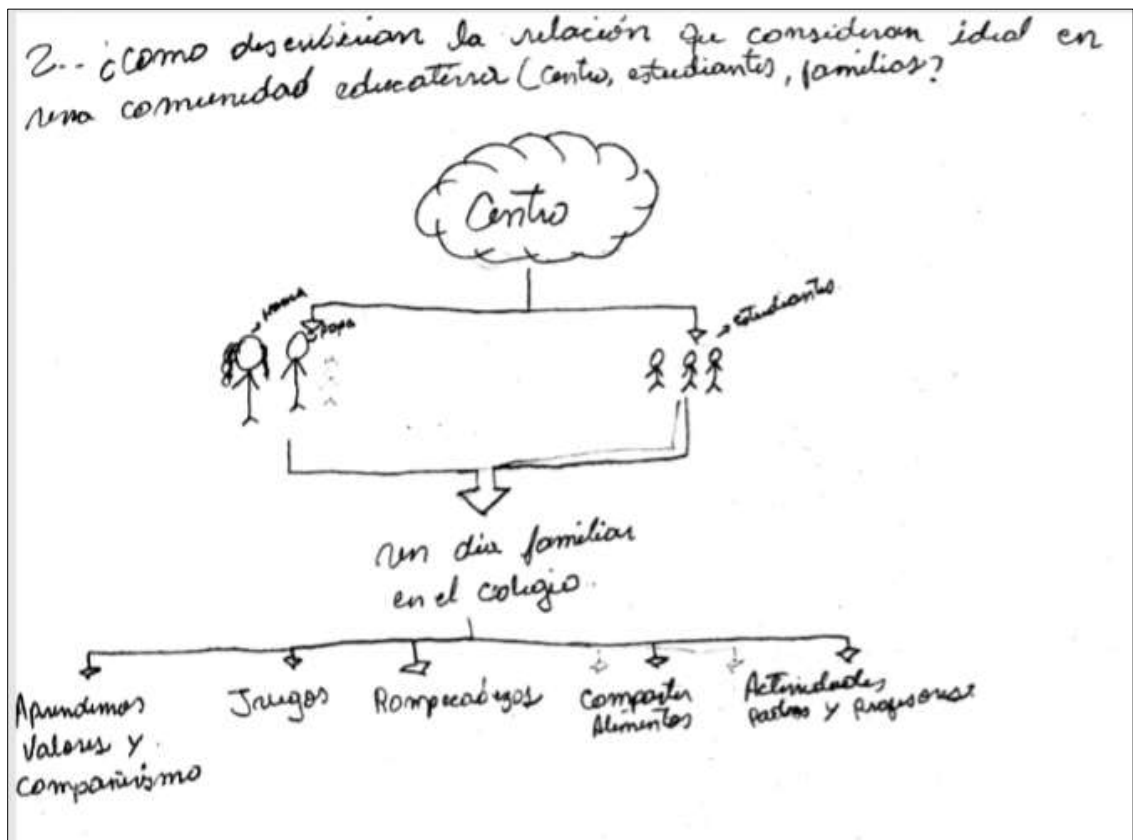 2.. ¿Como describirian la relación que consideran ideal en
una comunidad educativa (Centro, estudiantes, familias?
Centro
MAMA
PAPA
Estudiantes
un dia familiar
en el colegio.
Aprendemos
Valores y
Compañerismo
Juegos
Rompecabezas
Compartir
Alimentos
Actividades
Padres y profesores